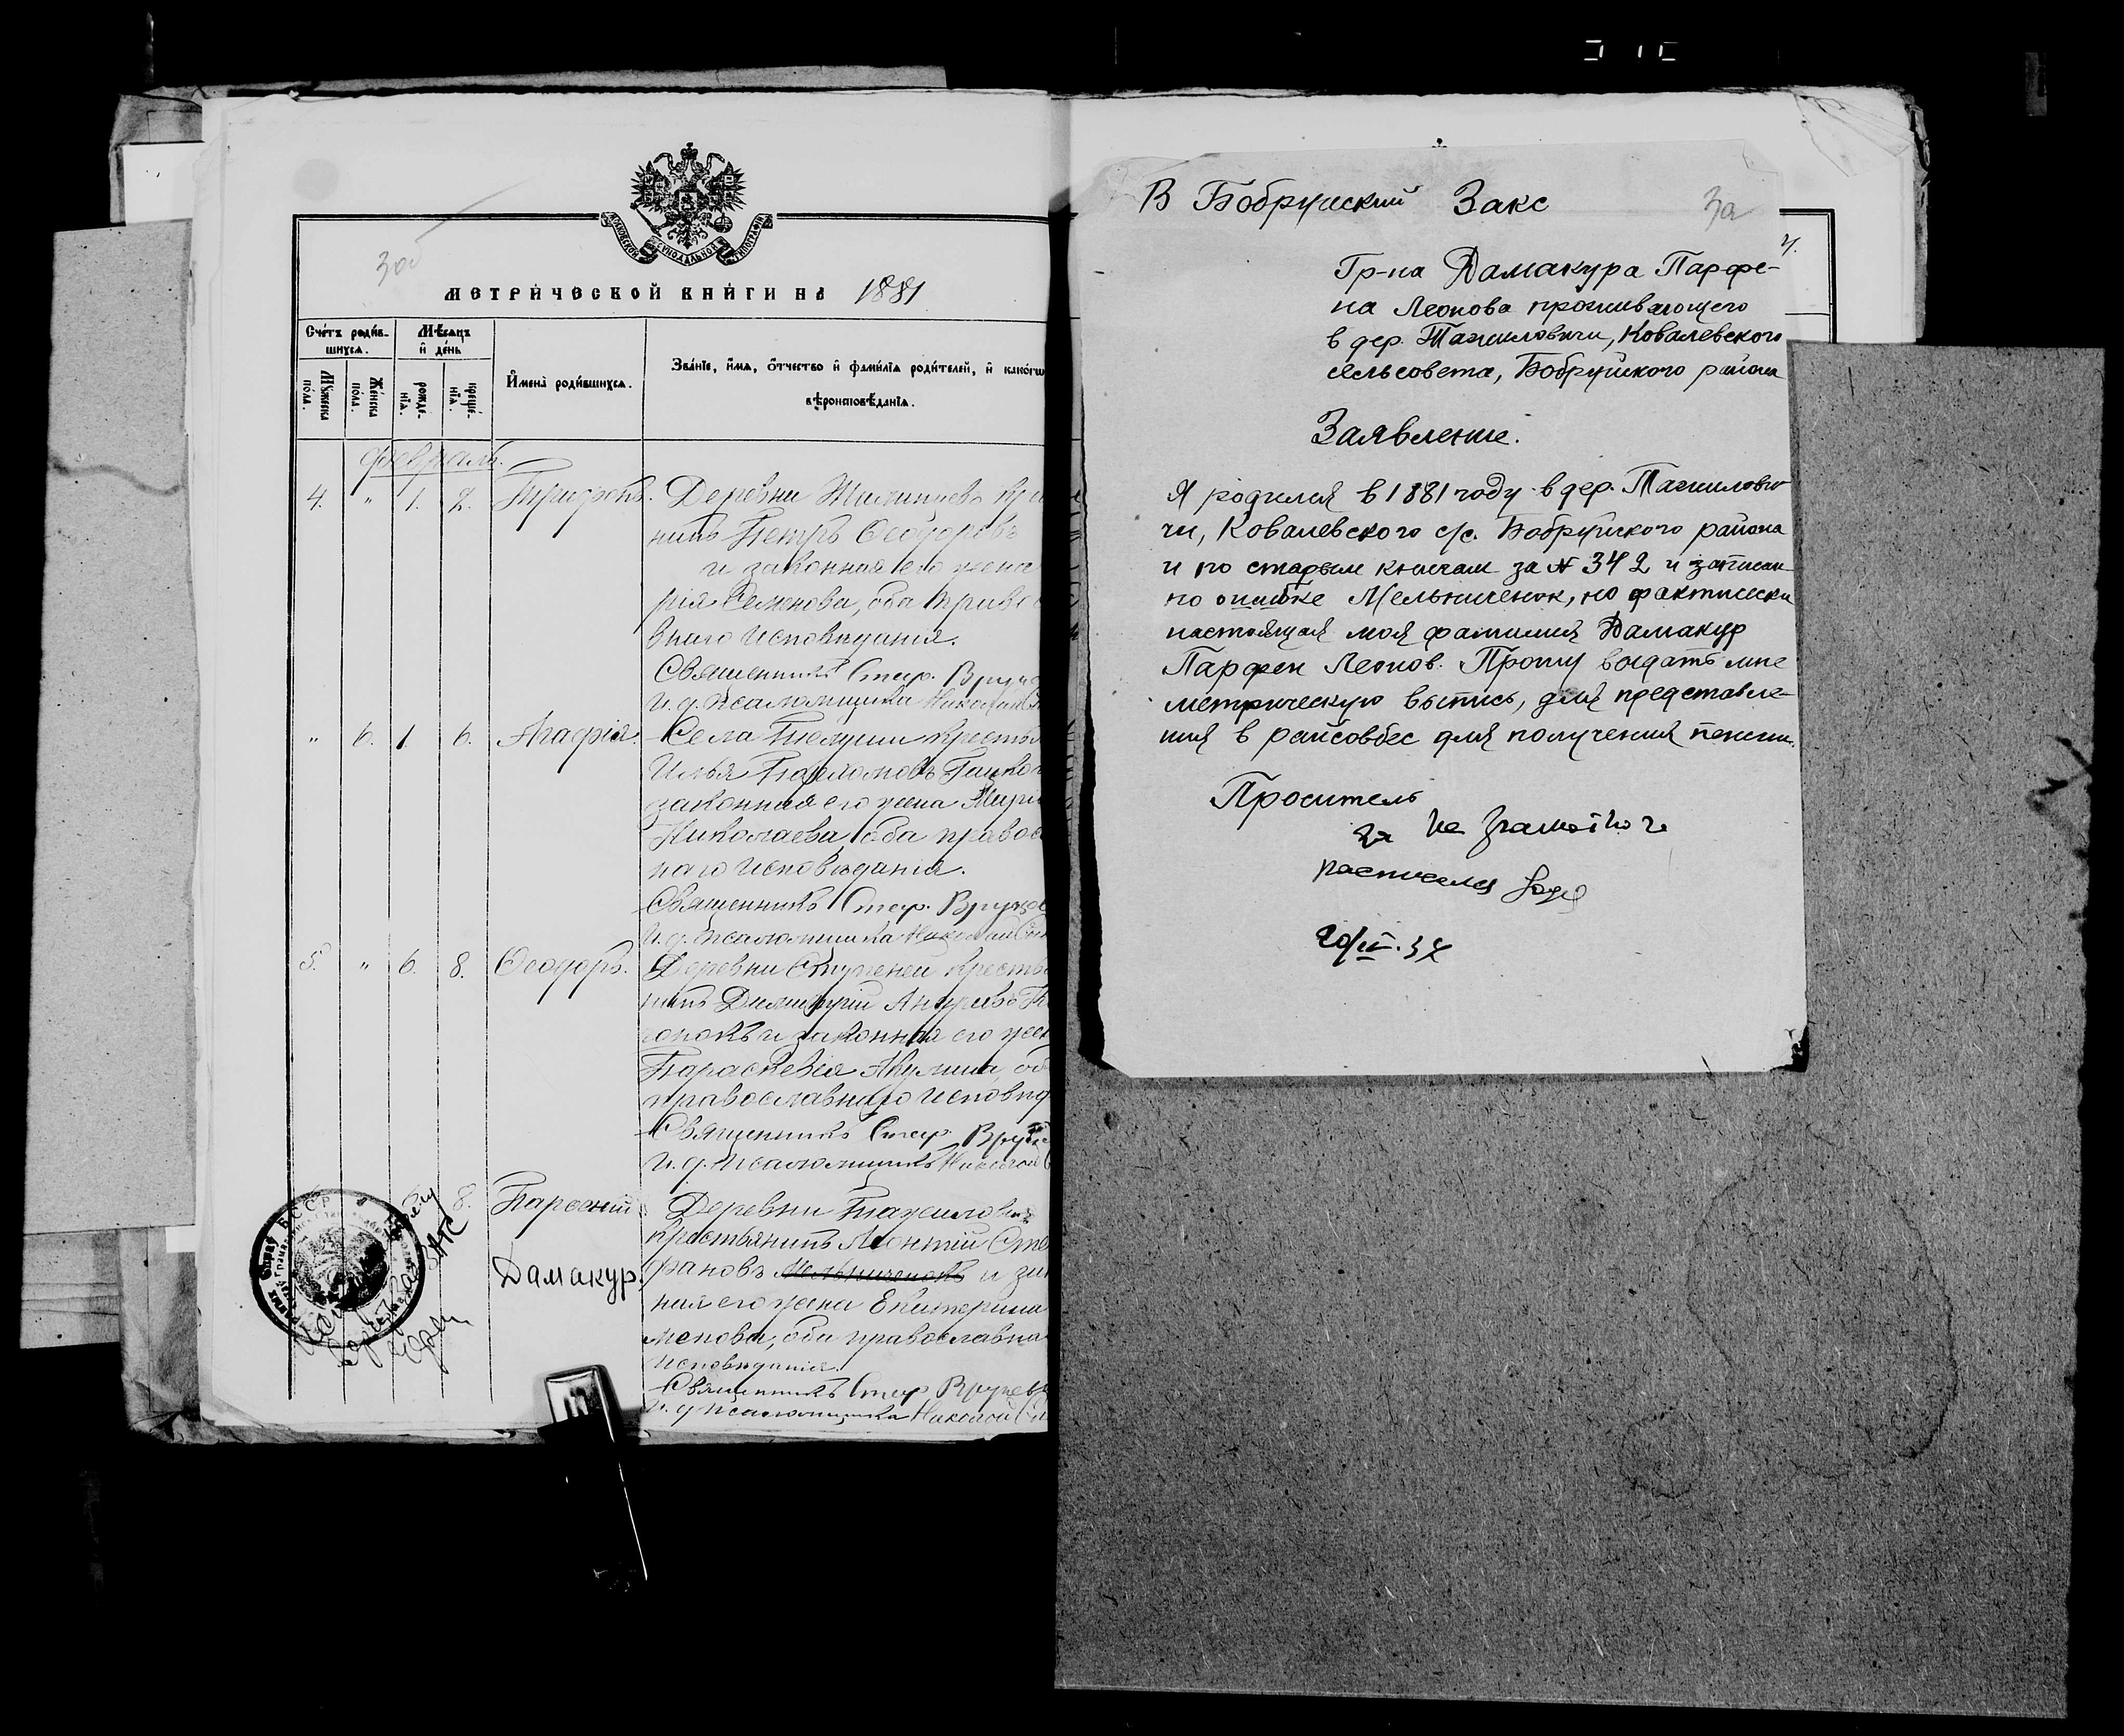 МОСКОВСКОЙ СѴНОДАЛЬНОЙ ТИПОГРАФІИ
МЕТРИ́ЧЕСКОЙ КНИ́ГИ НА 1881
Сче́тъ роди́в-
шихся.
Мѣ́сяцъ
и҆ де́нь
Мꙋ́жеска
по́ла.
Же́нска
по́ла.
рожде́-
нїѧ.
креще́-
нїѧ.
И҆мена̀ роди́вшихся.
Зва́нїе, и҆́мѧ, ѻ҆́тчество и҆ фами́лїѧ роди́телей, и҆ како́гѡ
вѣроисповѣ́данїѧ.
Февраль.
4. " 1. 2. Трифонъ. Деревни
нинъ Петръ Ѳеодоровъ
и законная его жена
рія Семенова, оба право
внаго исповѣданія.
Священникъ Стеф.
И. д. псаломщика Николай
" 6. 1. 6. Агафія. Села Телуши крестья
Илья
законная его жена Мари
Николаева, оба правос
наго исповѣданія.
Священникъ Стеф.
И. д. псаломщика Николай
5. " 6. 8. Ѳеодоръ. Деревни Ступеней кресть
нинъ Димитрій Андреевъ
и законная его жен
Параскевія Акулина, об
православнаго исповѣд
Священникъ Стеф.
И. д. псаломщика Николай
8. Парѳеній Деревни Тажилович
крестьянинъ Леонтій Сте
Дамакур. фановъ Мельниченокъ и зак
ная его жена Екатерина
менова, оба православна
исповѣданія.
Священникъ Стеф.
И. д. псаломщика Николай
БССР
ЗАГС
В Бобруйский Закс
За
Гр-на Дамакура Парфе-
на Леонова проживающего
в дер. Тажиловичи, Ковалевского
сельсовета, Бобруйского района
Заявление.
Я родился в 1881 году в дер. Тажилови
чи, Ковалевского с/с. Бобруйского района
и по старым книгам за № 342 и записан
по ошибке Мельниченок, но фактически
настоящая моя фамилия Дамакур
Парфен Леонов. Прошу выдать мне
метрическую выпись, для представле-
ния в райсовбес для получения пенсии.
Проситель
за не грамотного
расписался
20/IV.37